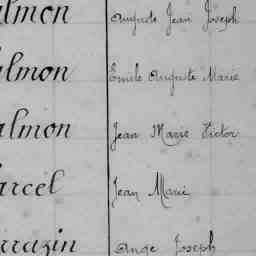 almon Auguste Jean Joseph
almon Emile Auguste Marie
almon Jean Marie Victor
arcel Jean Marie
rrazin Ange Joseph